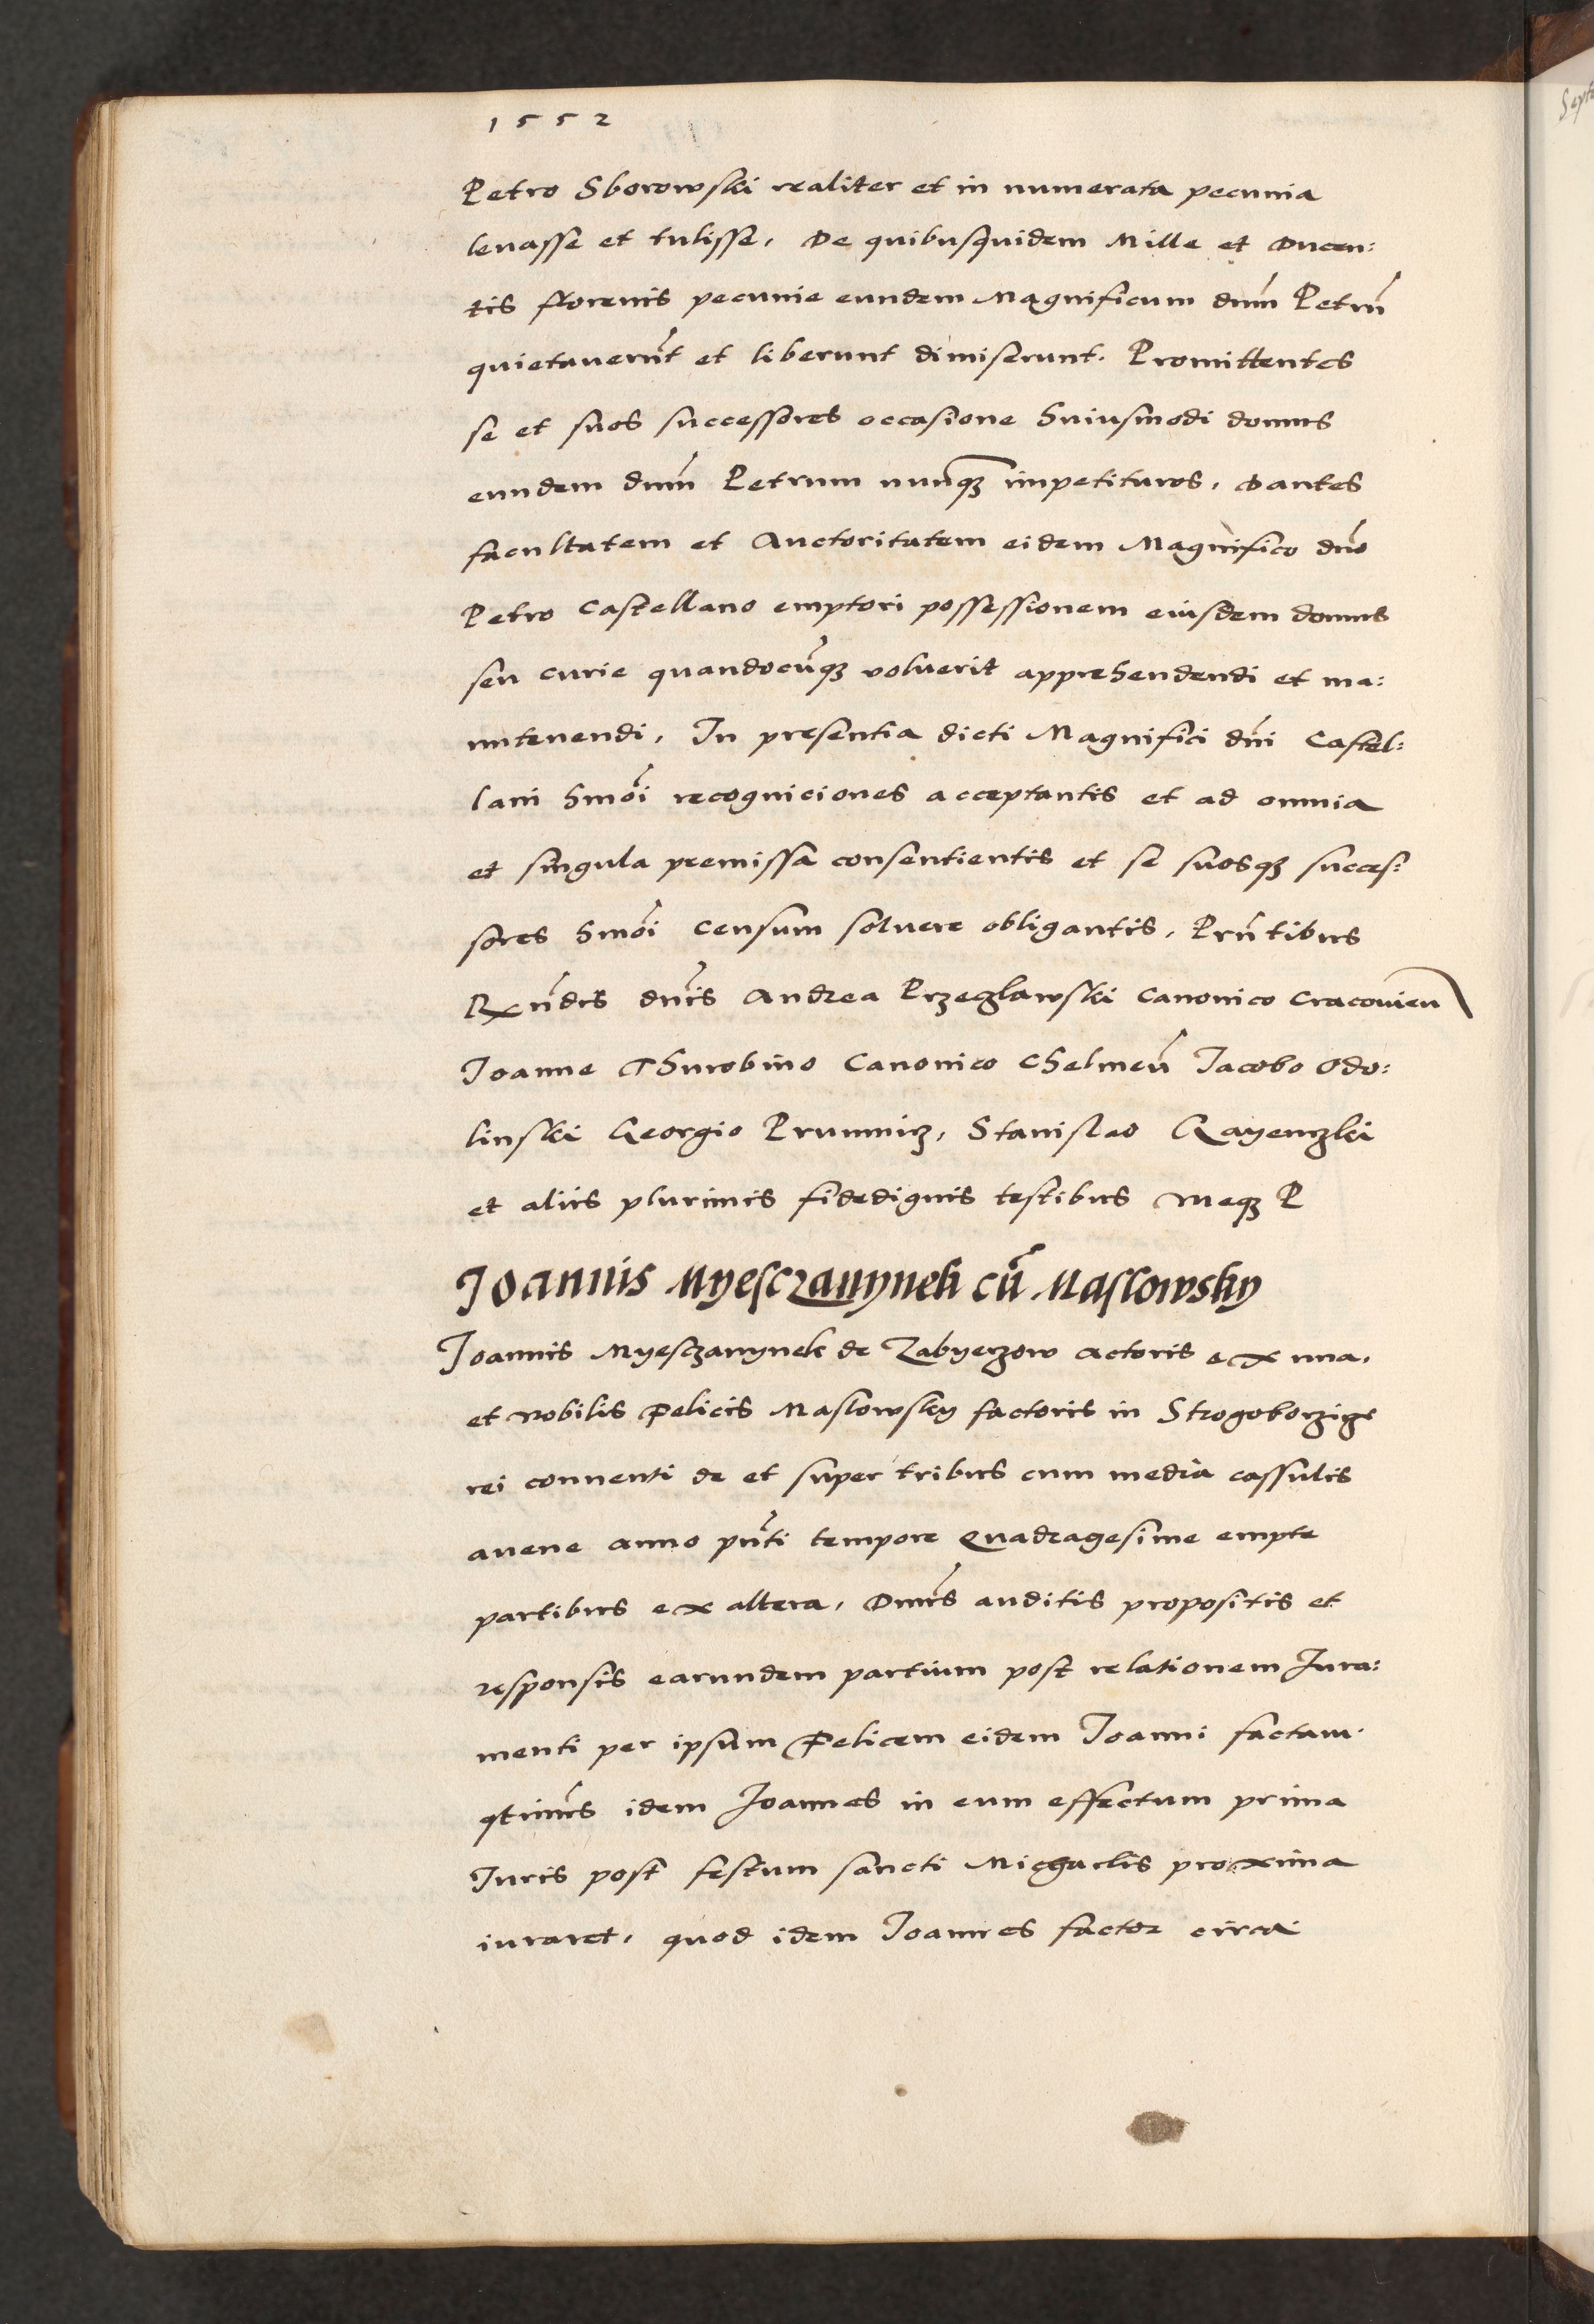 1552
Petro Sborowski realiter et in numerata pecunia
levasse et tulisse, De quibusquidem Mille et Ducen:
tis florenis pecunie eundem Magnificum dnm̄ Petrū
quietaverūt et liberunt dimiserunt. Promittentes
se et suos successores occasione huiusmodi domus
eundem dnm̄ Petrum nunqꝫ impetituros, Dantes
facultatem et Auctoritatem eidem Magnifico dnō
Petro Castellano emptori possessionem eiusdem domus
seu curie quandocūqꝫ voluerit apprehendendi et ma:
nutenendi, In presentia dicti Magnifici dnī Castel:
lani hmōi recogniciones acceptantis et ad omnia
et singula premissa consentientis et se suosqꝫ succes:
sores hmōi censum solvere obligantis, Prn̄tibus
Rx̄ndis dnīs Andrea Przeczlawski Canonico Cracovien
Joanne Thurobino Canonico Chelmen̄ Jacobo Odo:
linski Georgio Prumnicz, Stanislao Gayenczki
et aliis plurimis fidedignis testibus Meqꝫ P
Joannis Myesczanynek cū Maslowsky
Joannis Myesczanynek de Zabyerzow actoris ex una,
et Nobilis Felicis Maslowsky factoris in Strogoborzicze
rei conventi de et super tribus cum media cassulis
avene anno pn̄ti tempore Quadragesime empte
partibus ex altera, Dnūs auditis propositis et
responsis earundem partium post relationem Jura:
menti per ipsum Felicem eidem Joanni factam.
qtinūs idem Joannes in eum effectum prima
Juris post festum sancti Michaelis proxima
iuraret, quod idem Joannes factor circa